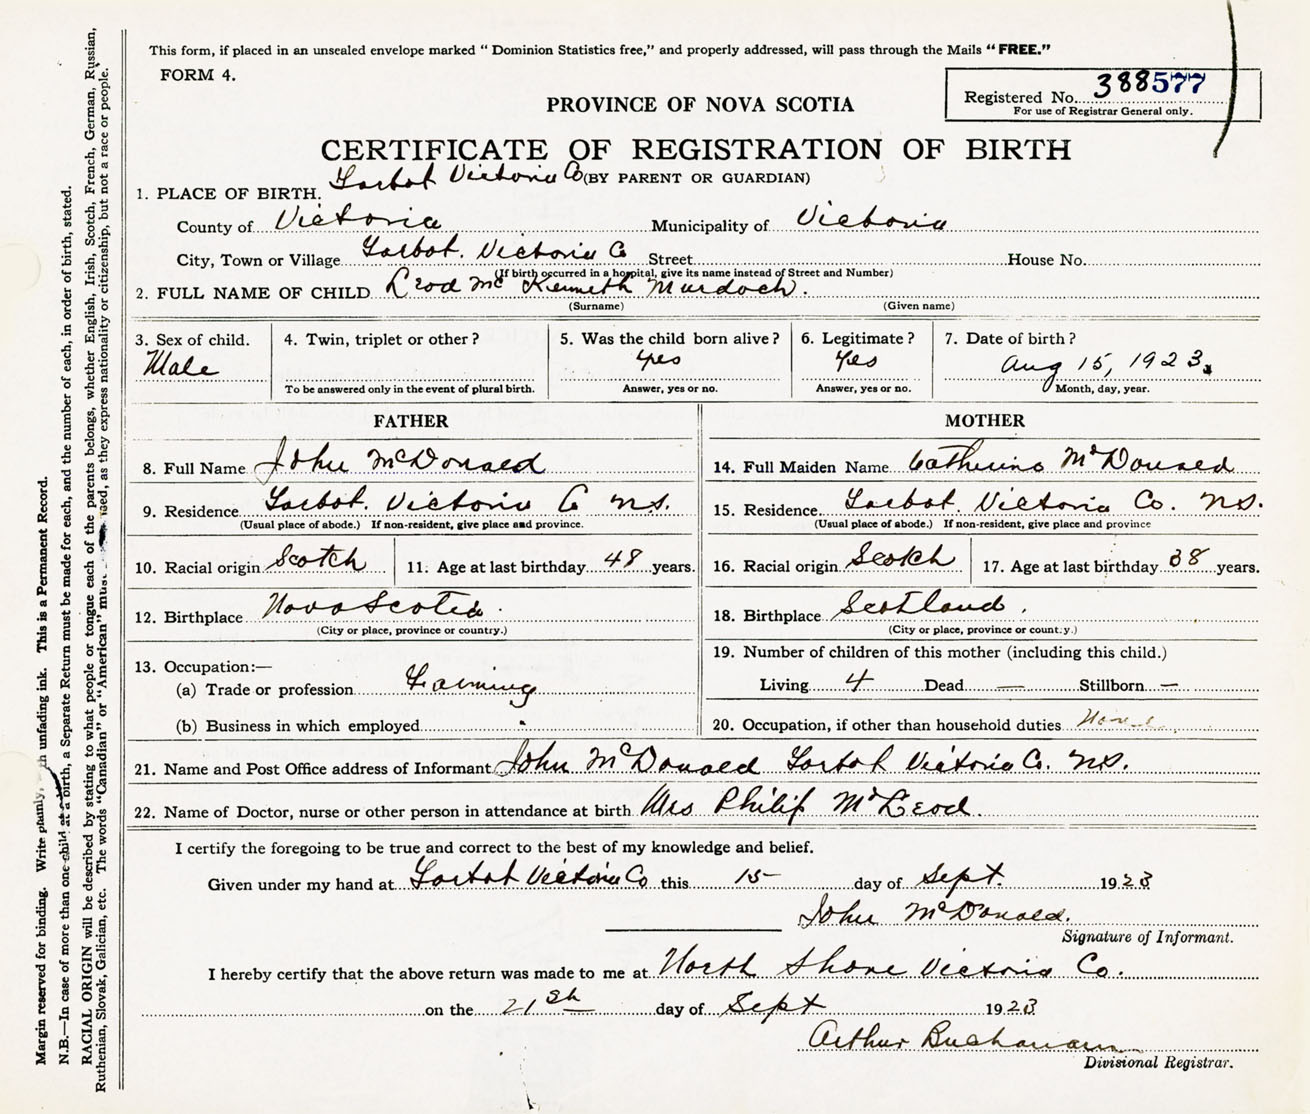 This form, if placed in an unsealed envelope marked “ Dominion Statistics free,” and properly addressed, will pass through the Mails “ FREE.”
FORM 4.
Registered No. 388577
For use of Registrar General only.
PROVINCE OF NOVA SCOTIA
CERTIFICATE OF REGISTRATION OF BIRTH
Tarbot Victoria Co (BY PARENT OR GUARDIAN)
1. PLACE OF BIRTH.
County of Victoria Municipality of Victoria
City, Town or Village Tarbot. Victoria Co Street House No.
(If birth occurred in a hospital, give its name instead of Street and Number)
2. FULL NAME OF CHILD Leod Mc Kenneth Murdoch.
(Surname) (Given name)
3. Sex of child. 4. Twin, triplet or other ? 5. Was the child born alive ? 6. Legitimate ? 7. Date of birth ?
Male yes Yes Aug 15, 1923.
To be answered only in the event of plural birth. Answer, yes or no. Answer, yes or no. Month, day, year.
FATHER MOTHER
8. Full Name John McDonald 14. Full Maiden Name Catherine McDonald
9. Residence Tarbot. Victoria Co N.S. 15. Residence. Tarbot. Victoria Co. N.S.
(Usual place of abode.) If non-resident, give place and province. (Usual place of abode.) If non-resident, give place and province
10. Racial origin Scotch 11. Age at last birthday 48 years. 16. Racial origin Scotch 17. Age at last birthday 38 years.
12. Birthplace Nova Scotia. 18. Birthplace Scotland.
(City or place, province or country.) (City or place, province or country.)
13. Occupation:— 19. Number of children of this mother (including this child.)
(a) Trade or profession Farming Living 4 Dead — Stillborn —
(b) Business in which employed 20. Occupation, if other than household duties None
21. Name and Post Office address of Informant John McDonald Tarbot Victoria Co. N.S.
22. Name of Doctor, nurse or other person in attendance at birth Mrs Philip McLeod.
I certify the foregoing to be true and correct to the best of my knowledge and belief.
Given under my hand at Tarbot Victoria Co this 15 day of Sept. 1923
John McDonald.
Signature of Informant.
I hereby certify that the above return was made to me at North Shore Victoria Co.
on the 21st day of Sept 1923
Arthur Buchanan
Divisional Registrar.
Margin reserved for binding. Write plainly, unfading ink. This is a Permanent Record.
N.B.—In case of more than one child at a birth, a Separate Return must be made for each, and the number of each, in order of birth, stated.
RACIAL ORIGIN will be described by stating to what people or tongue each of the parents belongs, whether English, Irish, Scotch, French, German, Russian,
Ruthenian, Slovak, Galician, etc. The words “Canadian” or “American” must used, as they express nationality or citizenship, but not a race or people.